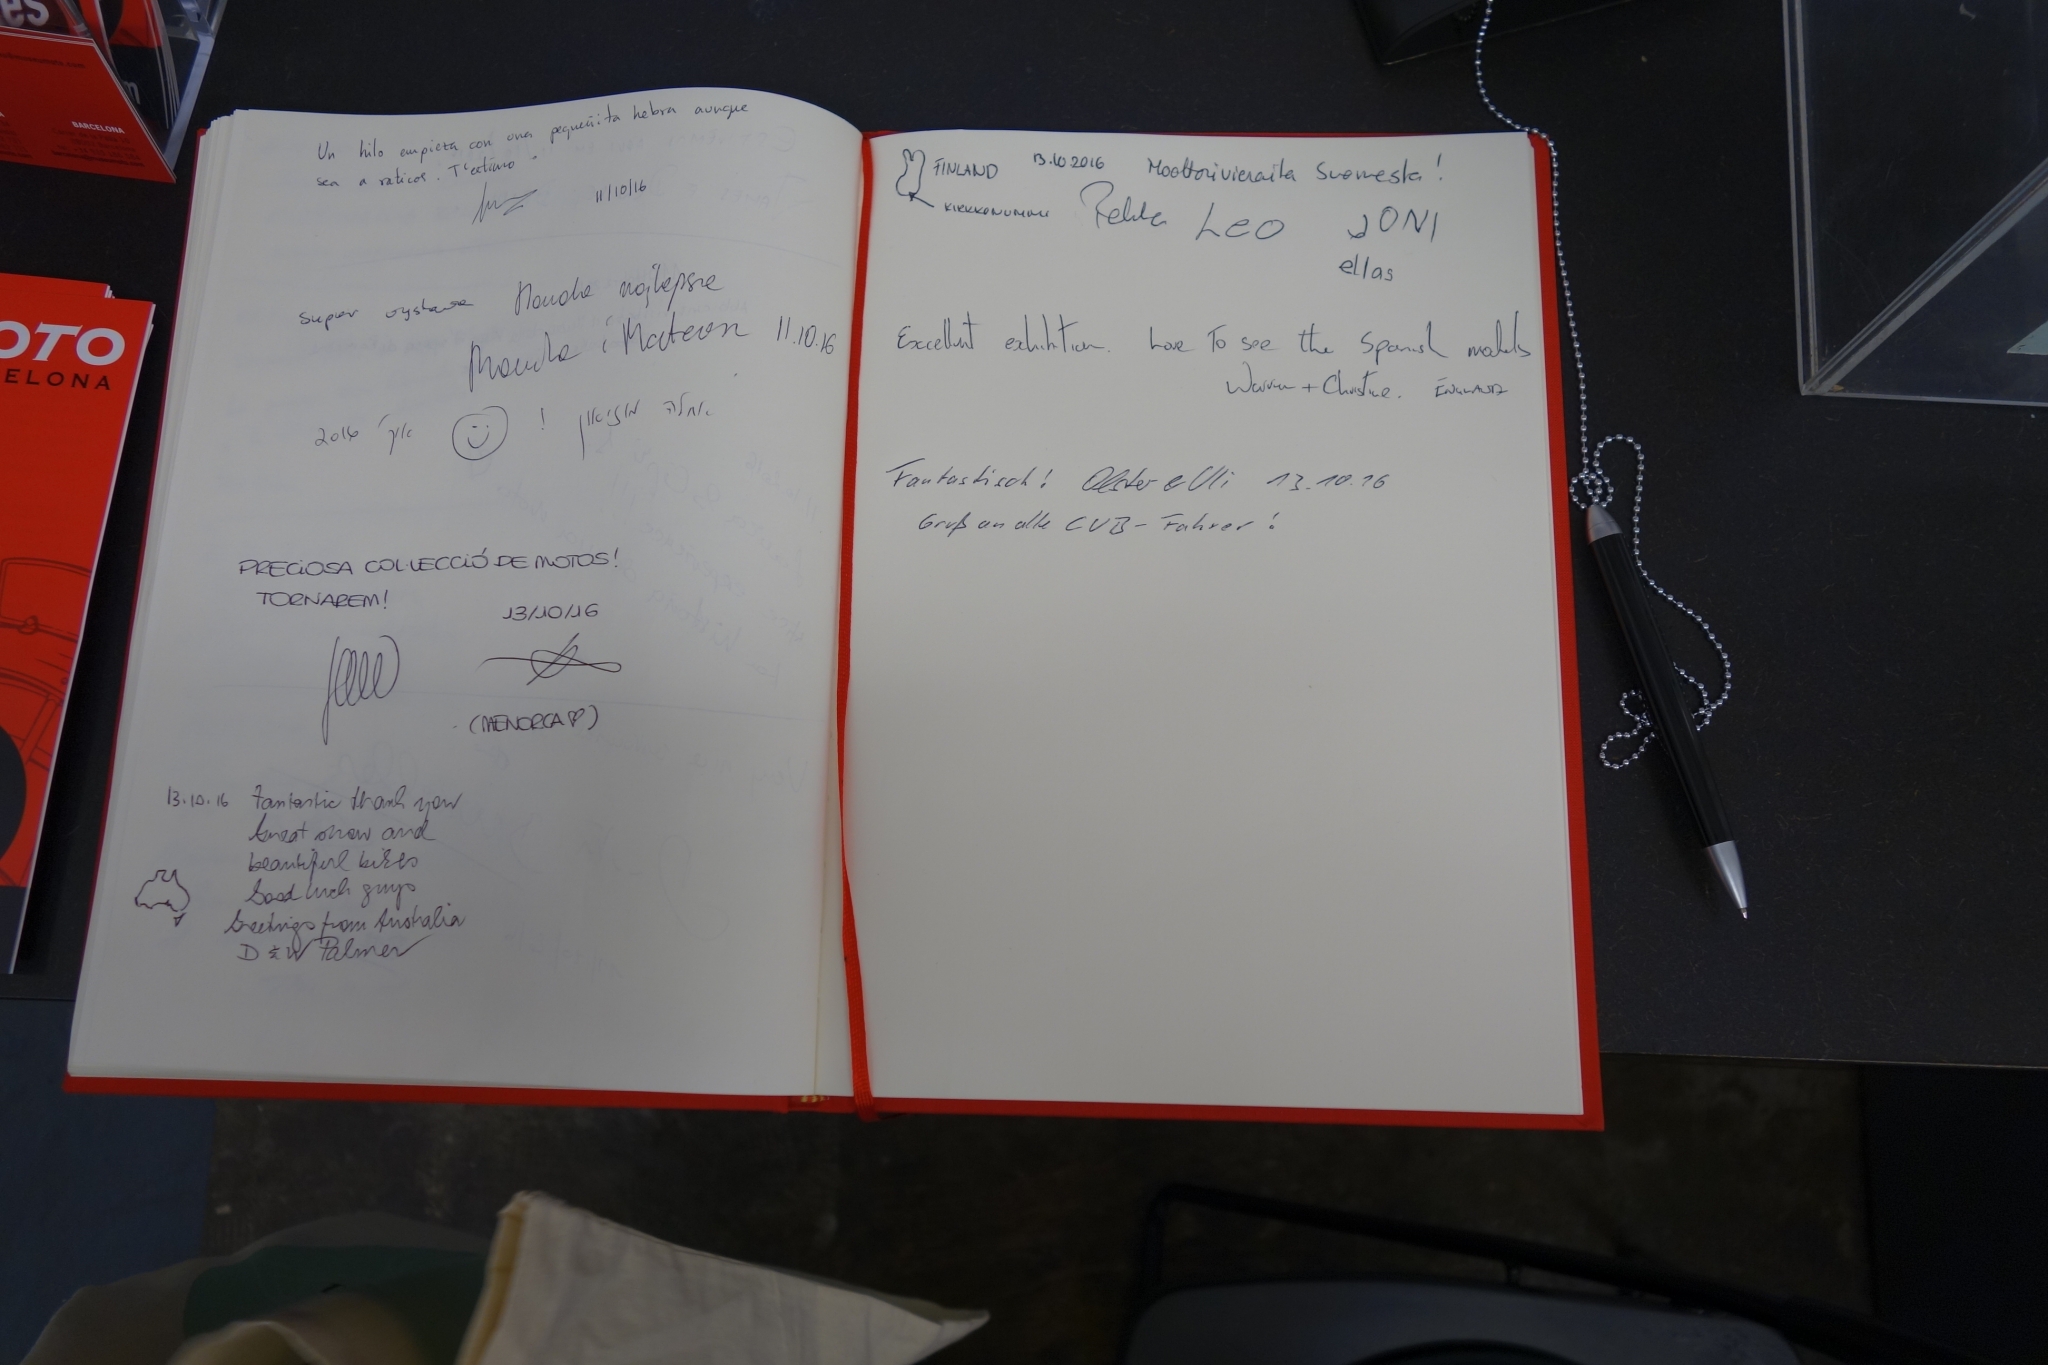 BARCELONA
OTO
ELONA
Un hilo empieza con una pequeñita hebra aunque
sea a raticos.
11/10/16
super wystawa Honda najlepsze
i Mateusz 11.10.16
! 2016
PRECIOSA COL·LECCIÓ DE MOTOS!
TORNAREM!
13/10/16
(MENORCA ♡)
13.10.16 Fantastic thank you
Great show and
beautiful bikes
Good luck guys
Greetings from Australia
D & W Palmer
FINLAND 13.10.2016 Moottorivieraita Suomesta!
KIRKKONUMMI Pekka LEO JONI
ellas
Excellent exhibition. Love To see the Spanish models
Warren + Christine. ENGLAND
Fantastisch! & Uli 13.10.16
Gruß an alle CUB-Fahrer!